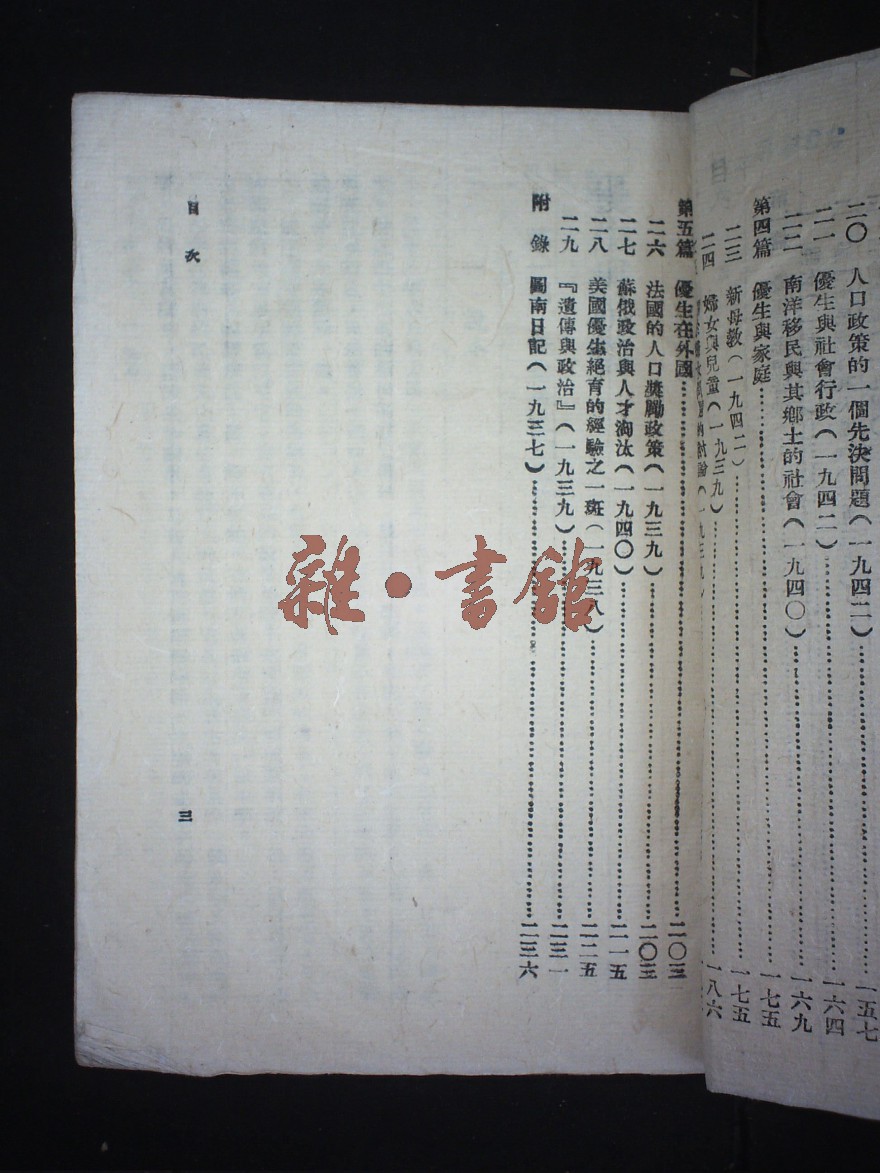 二〇 人口政策的一個先決問題(一九四二)……一五七
二一 優生與社會行政(一九四二)……一六四
二二 南洋移民與其鄉土的社會(一九四〇)……一六九
第四篇 優生與家庭……一七五
二三 新母教(一九四二)……一七五
二四 婦女與兒童(一九三九)……一八六
的討論(一九三九)
第五篇 優生在外國……二〇三
二六 法國的人口獎勵政策(一九三九)……二〇三
二七 蘇俄政治與人才淘汰(一九四〇)……二一五
二八 美國優生絕育的經驗之一斑(一九三八)……二二五
二九 『遺傳與政治』(一九三九)……二三一
附錄 圖南日記(一九三七)……二三六
目次
三
雜·書館